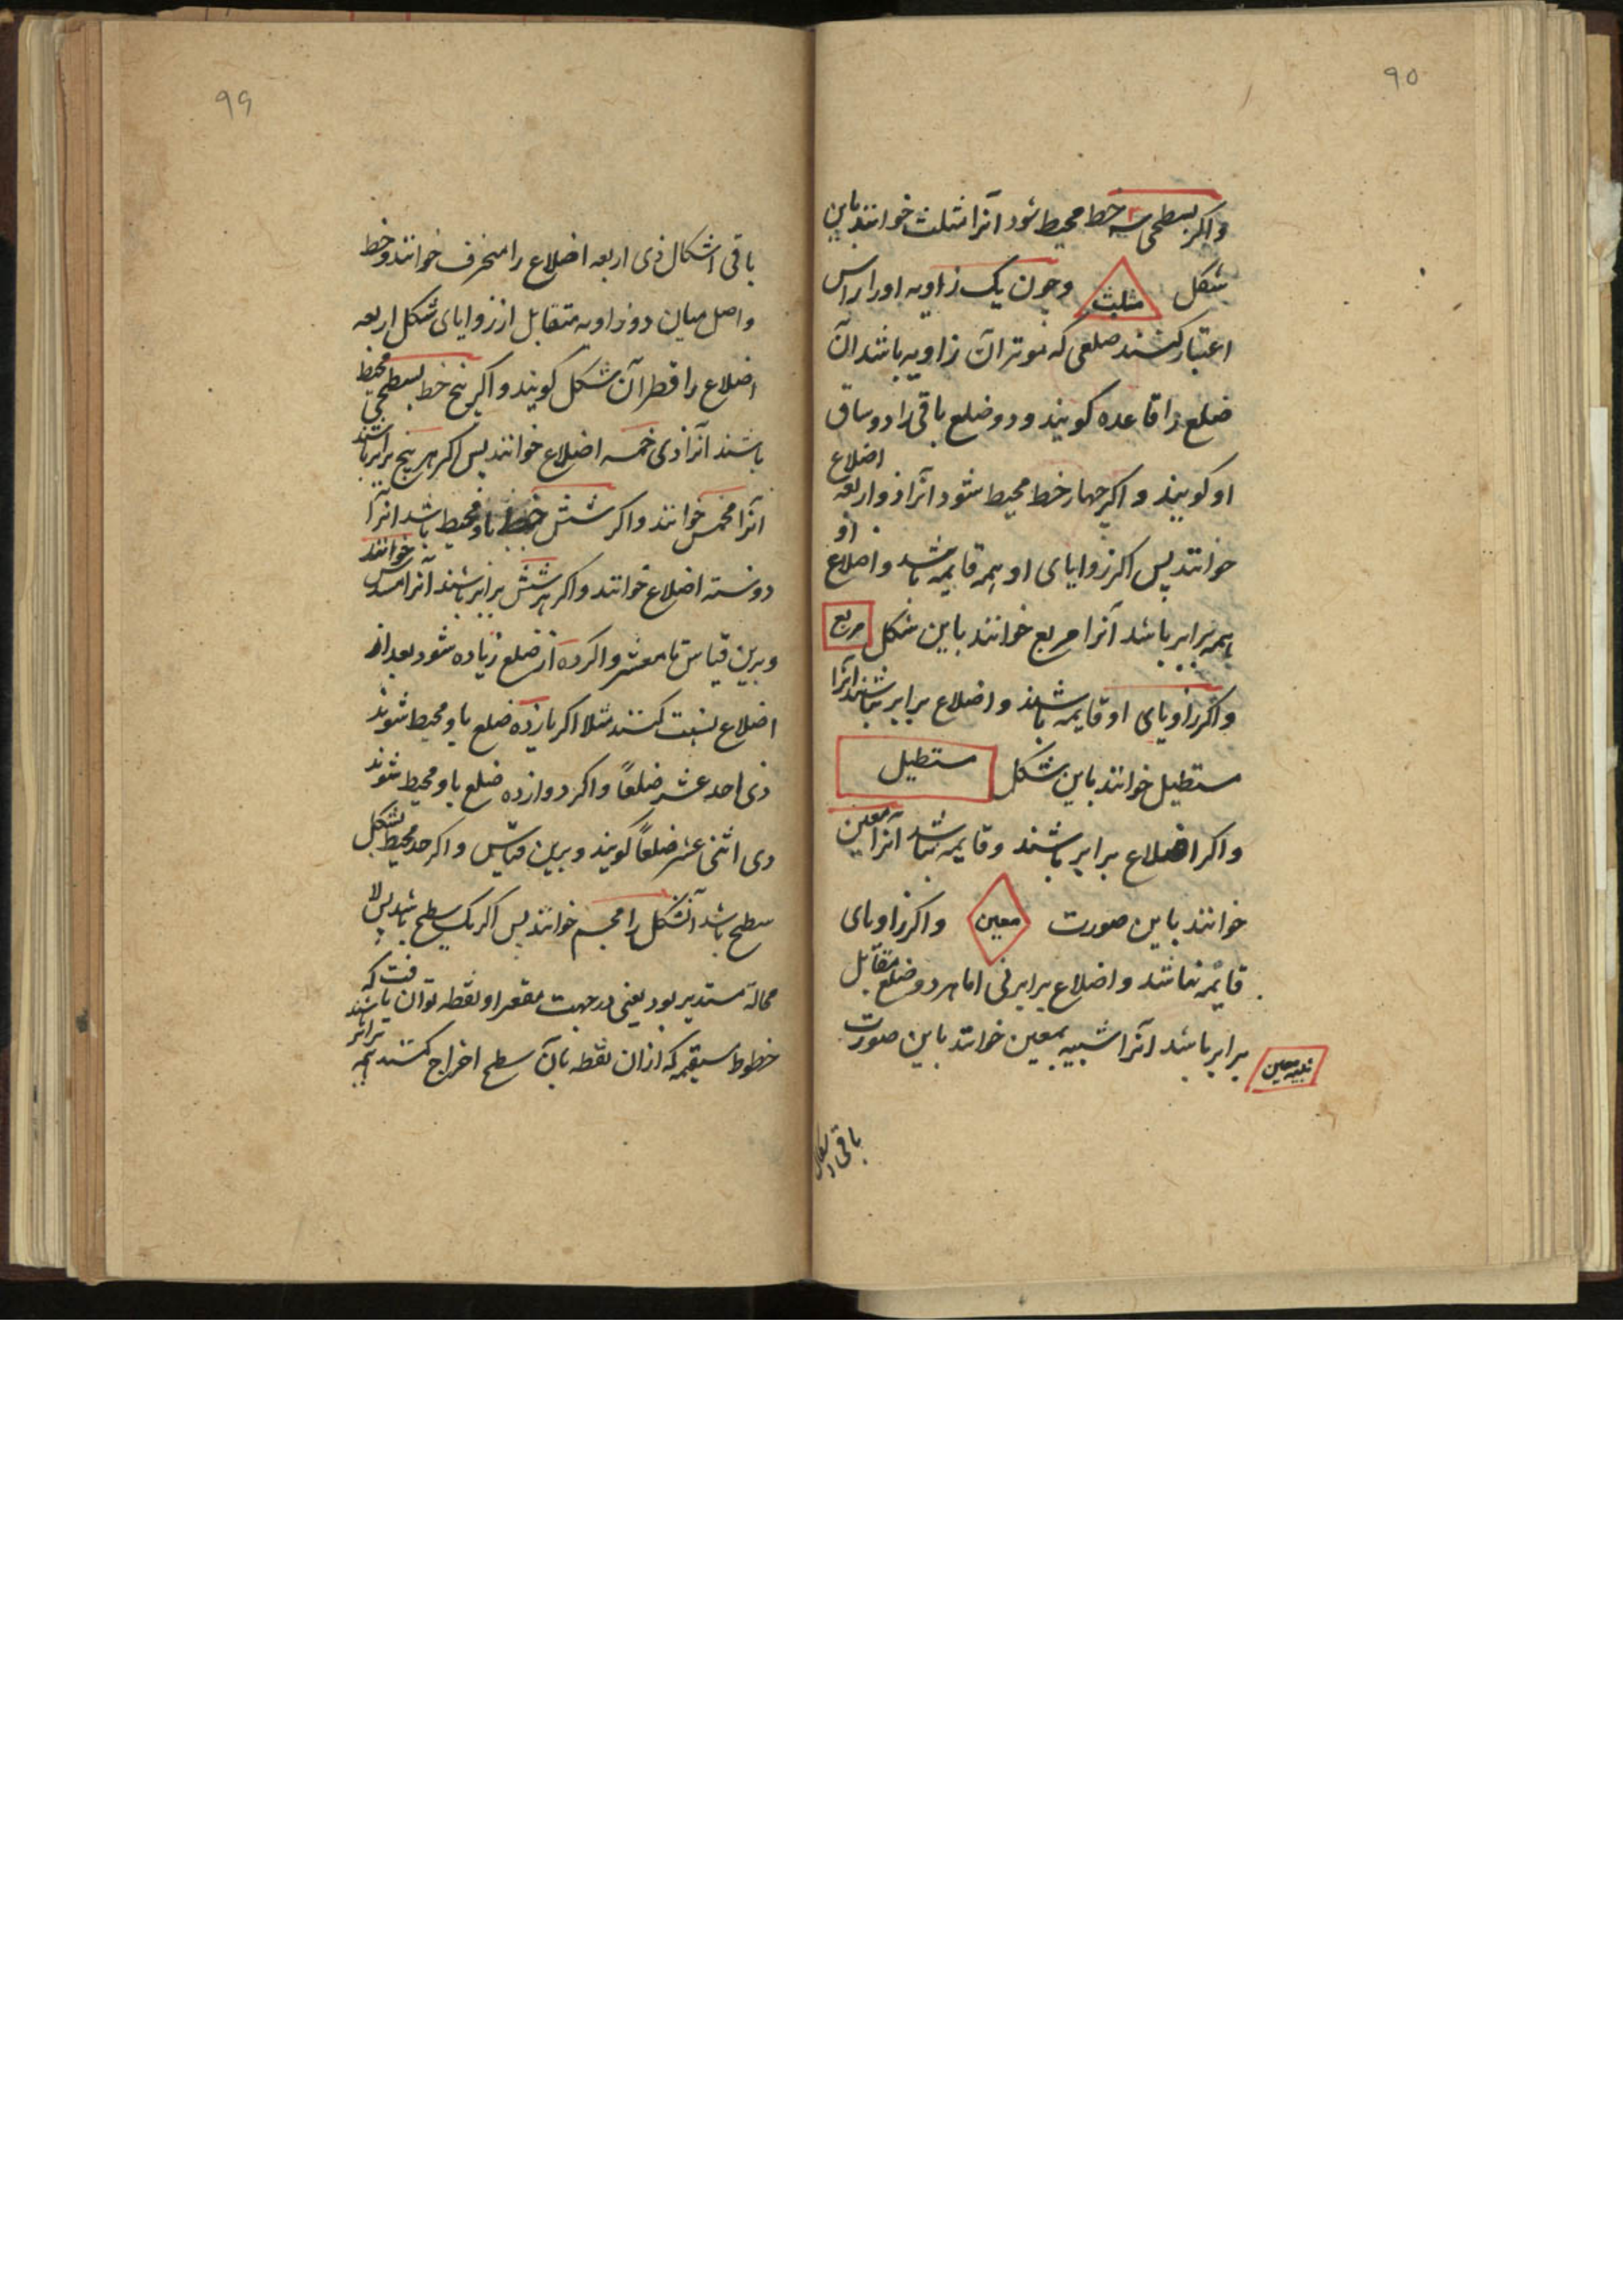 ۹۵
واکر بسطحی سه خط محیط شود آنرا مثلث خوانند باین
شکل مثلث وچون یک زاویه او را راس
اعتبار کنند ضلعی که موتر آن زاویه باشد آن
ضلع را قاعده کویند و دو ضلع باقی را دو ساق
او کویند و اکر چهار خط محیط شود آنرا ذو اربعه اضلاع
خوانند پس اکر زوایای او همه قایمه باشد و اضلاع او
همه برابر باشد آنرا مربع خوانند باین شکل مربع
و اکر زاویای او قایمه باشند و اضلاع برابر نباشند آنرا
مستطیل خوانند باین شکل مستطیل
و اکر اضلاع برابر باشند و قایمه نباشد آنرا معین
خوانند باین صورت معین و اکر زاویای
قایمه نباشد و اضلاع برابر نی اما هر دو ضلع متقابل
برابر باشد آنرا شبیه بمعین خوانند باین صورت
شبیه معین
باقی اشکال
۹۶
باقی اشکال ذی اربعه اضلاع را منحرف خوانند و خط
واصل میان دو زاویه متقابل از زوایای شکل اربعه
اضلاع را قطر آن شکل کویند و اکر پنج خط بسطحی محیط
باشند آنرا ذی خمسه اضلاع خوانند پس اکر هر پنج برابر باشند
آنرا مخمس خوانند و اکر شش خط باو محیط باشد آنرا
ذو سته اضلاع خوانند و اکر هر شش برابر باشند آنرا مسدس خوانند
و برین قیاس تا معشر و اکر ده از ضلع زیاده شود بعد از
اضلاع نسبت کنند مثلا اکر یازده ضلع باو محیط شوند
ذی احد عشر ضلعاً و اکر دوازده ضلع باو محیط شوند
ذی اثنی عشر ضلعاً کویند و برین قیاس و اکر حد محیط بشکل
سطح باشد آنشکل را مجسم خوانند پس اکر یک سطح باشد پس لا
محالة مستدیر بود یعنی در جهت مقعر او نقطه توان یافت که
خطوط مستقیمه که از آن نقطه بآن سطح اخراج کنند همه برابر باشند